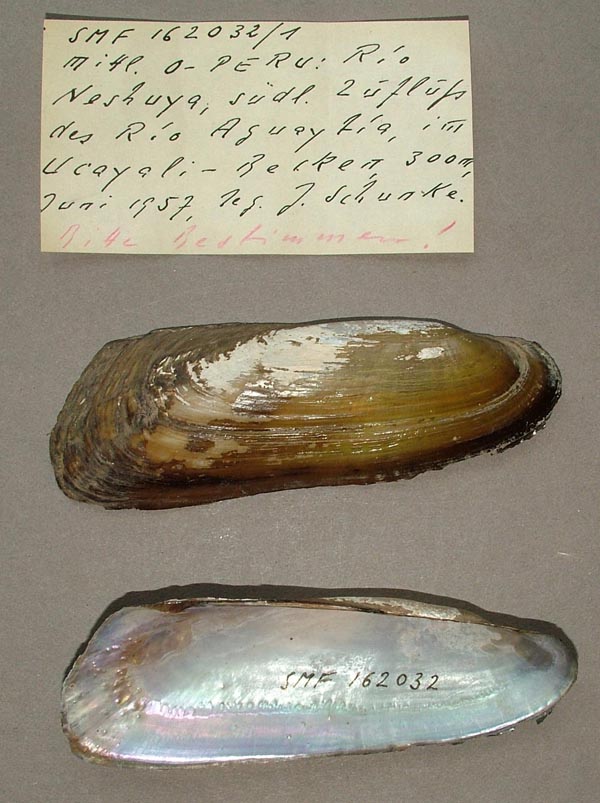 SMF 162032/1
mittl. O-PERU: Río
Neshuya, südl. Zufluß
des Río Aguaytía, im
Ucayali-Becken, 300m,
Juni 1957, leg. J. Schunke.
Bitte Bestimmen!
SMF 162032